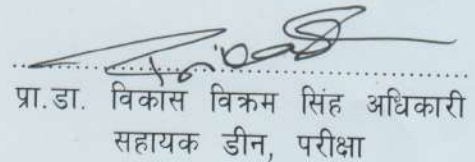 प्रा.डा. विकास विक्रम सिंह अधिकारी
सहायक डीन, परीक्षा